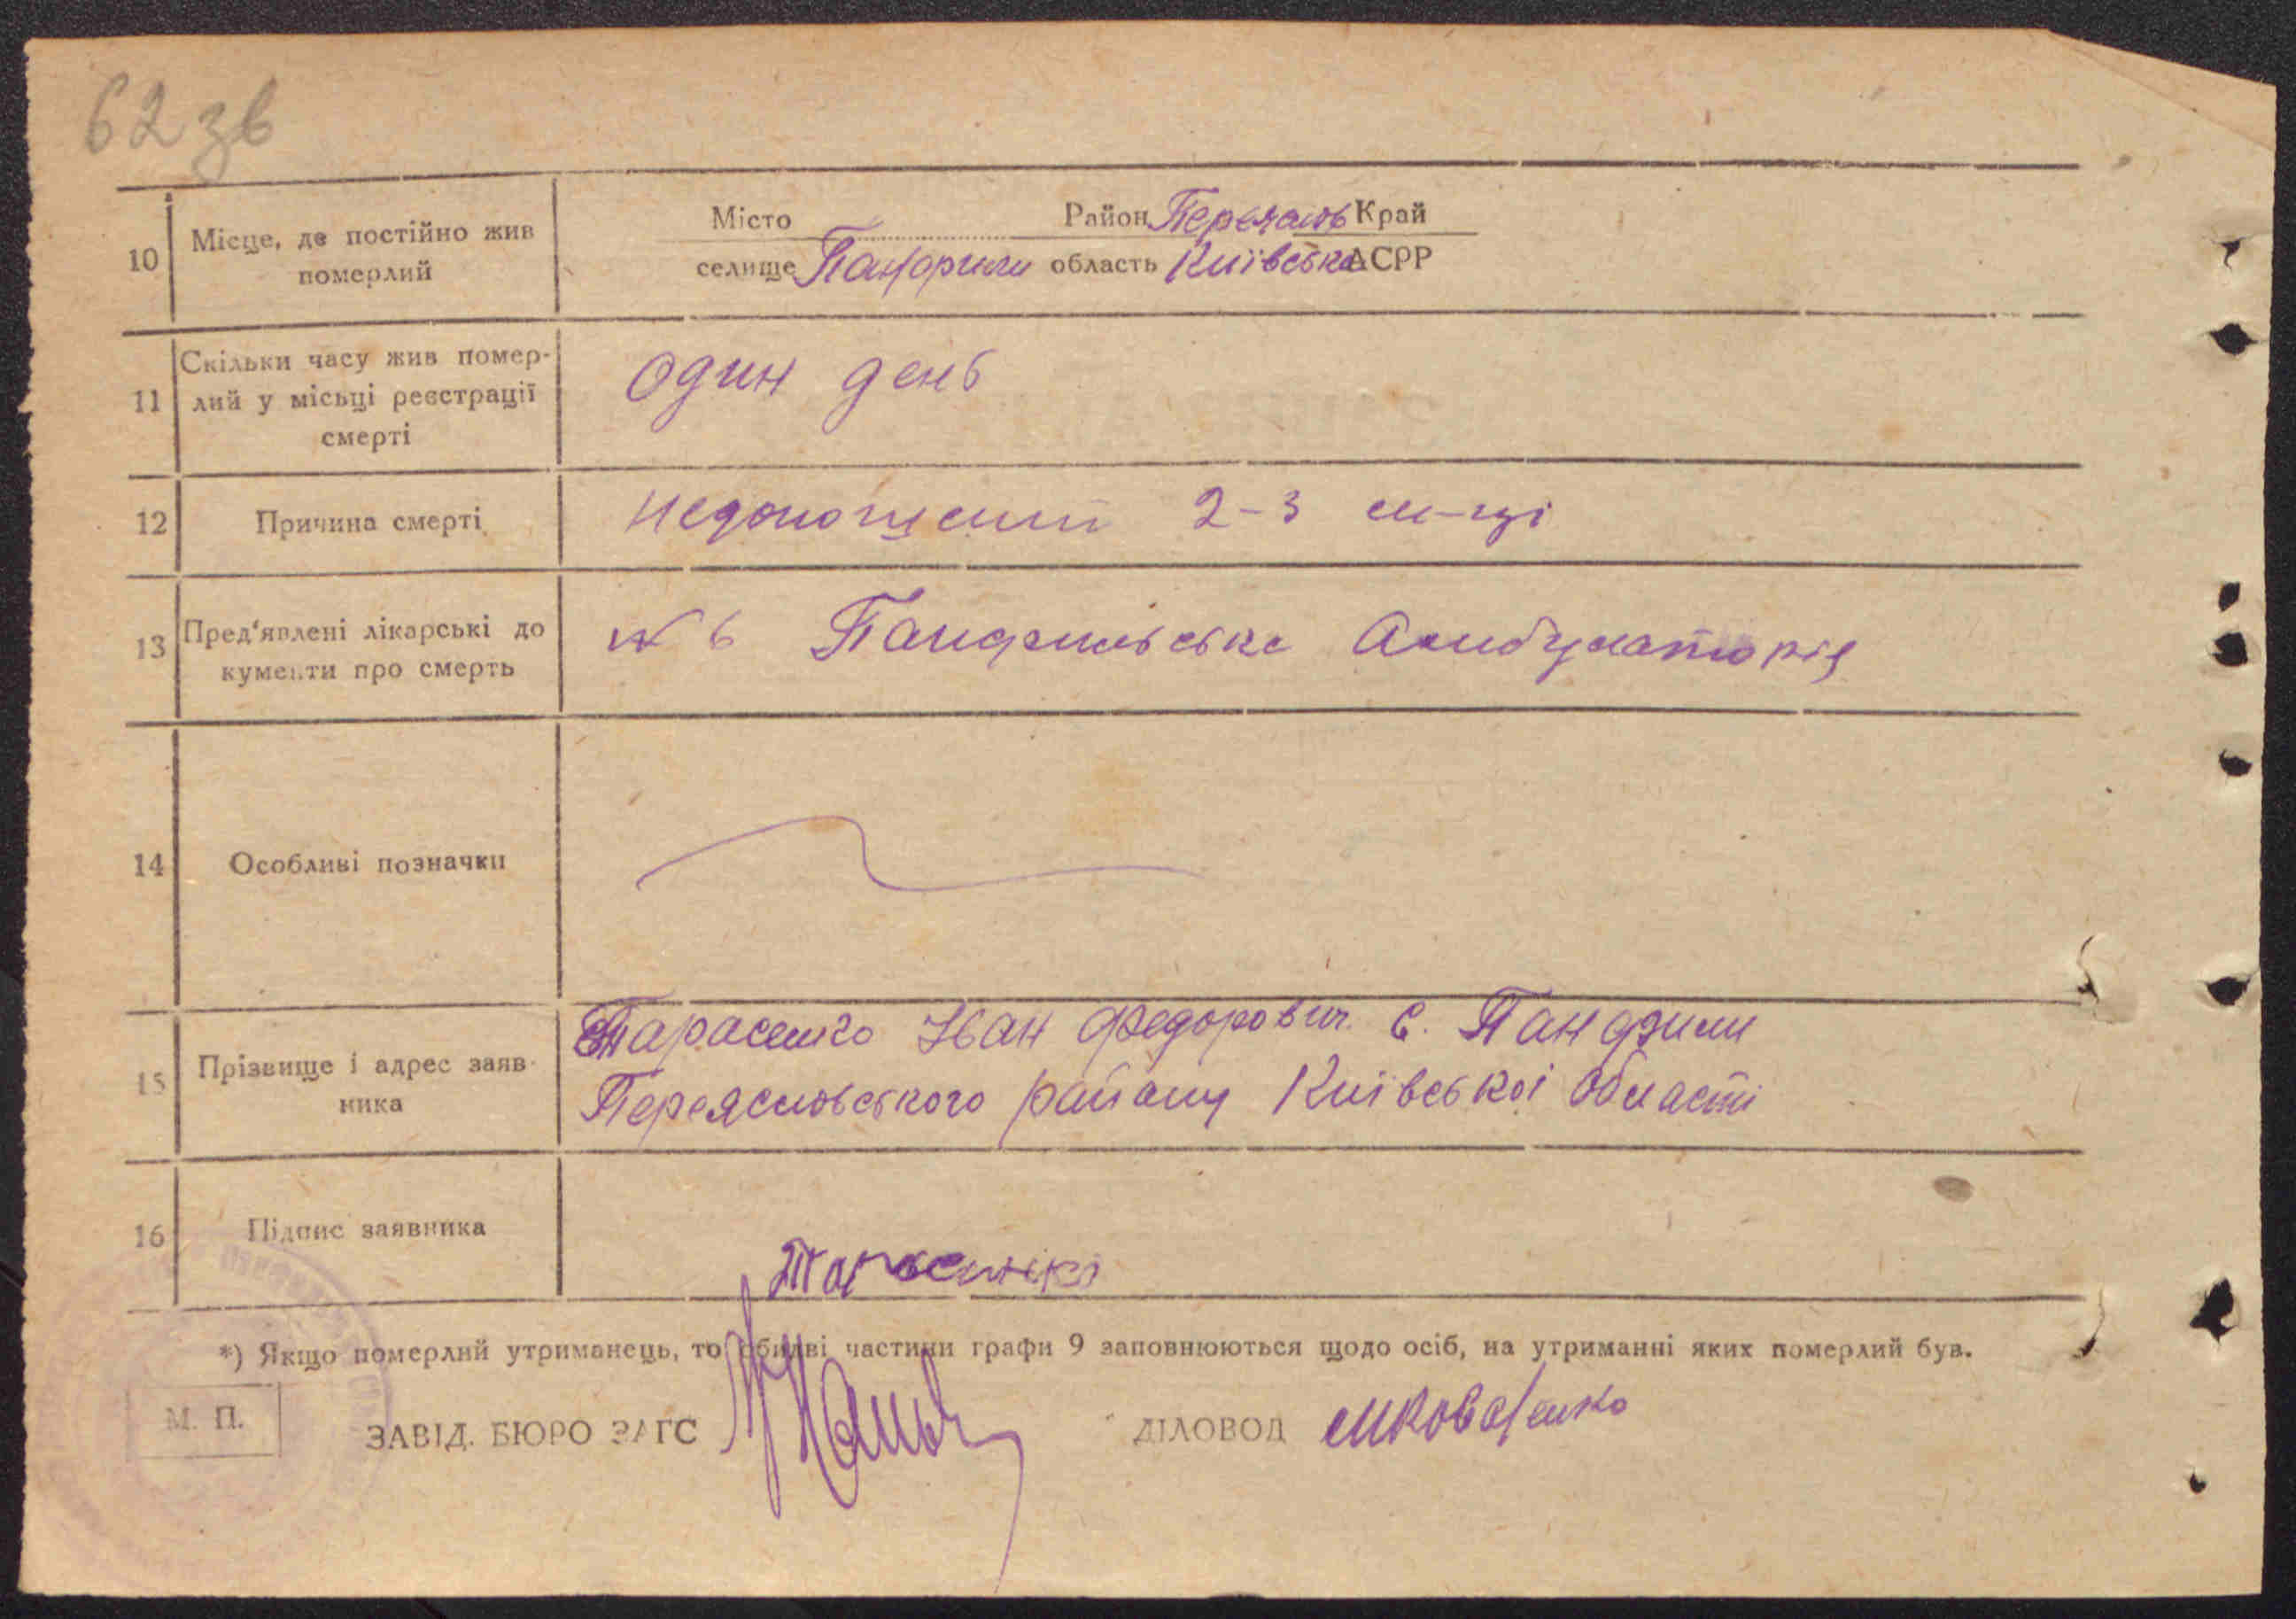 62 зв
10 Місце, де постійно жив померлий
Місто Район Переяслов Край
селище Панфили область Київська АСРР
11 Скільки часу жив помер-
лий у місьці реєстрації
смерті
один день
12 Причина смерті недоношений 2-3 м-ці
13 Пред'явлені лікарські до
кументи про смерть
№ 6 Панфильська Амбулаторія
14 Особливі позначки
15 Прізвище і адрес заяв-
ника
Тарасенко Іван Федорович с. Панфили
Переясловського району Київської області
16 Підпис заявника
Тарасенко
*) Якщо померлий утриманець, то обидві частини графи 9 заповнюються щодо осіб, на утриманні яких померлий був.
М. П.
ЗАВІД. БЮРО ЗАГС
ДІЛОВОД МКоваленко